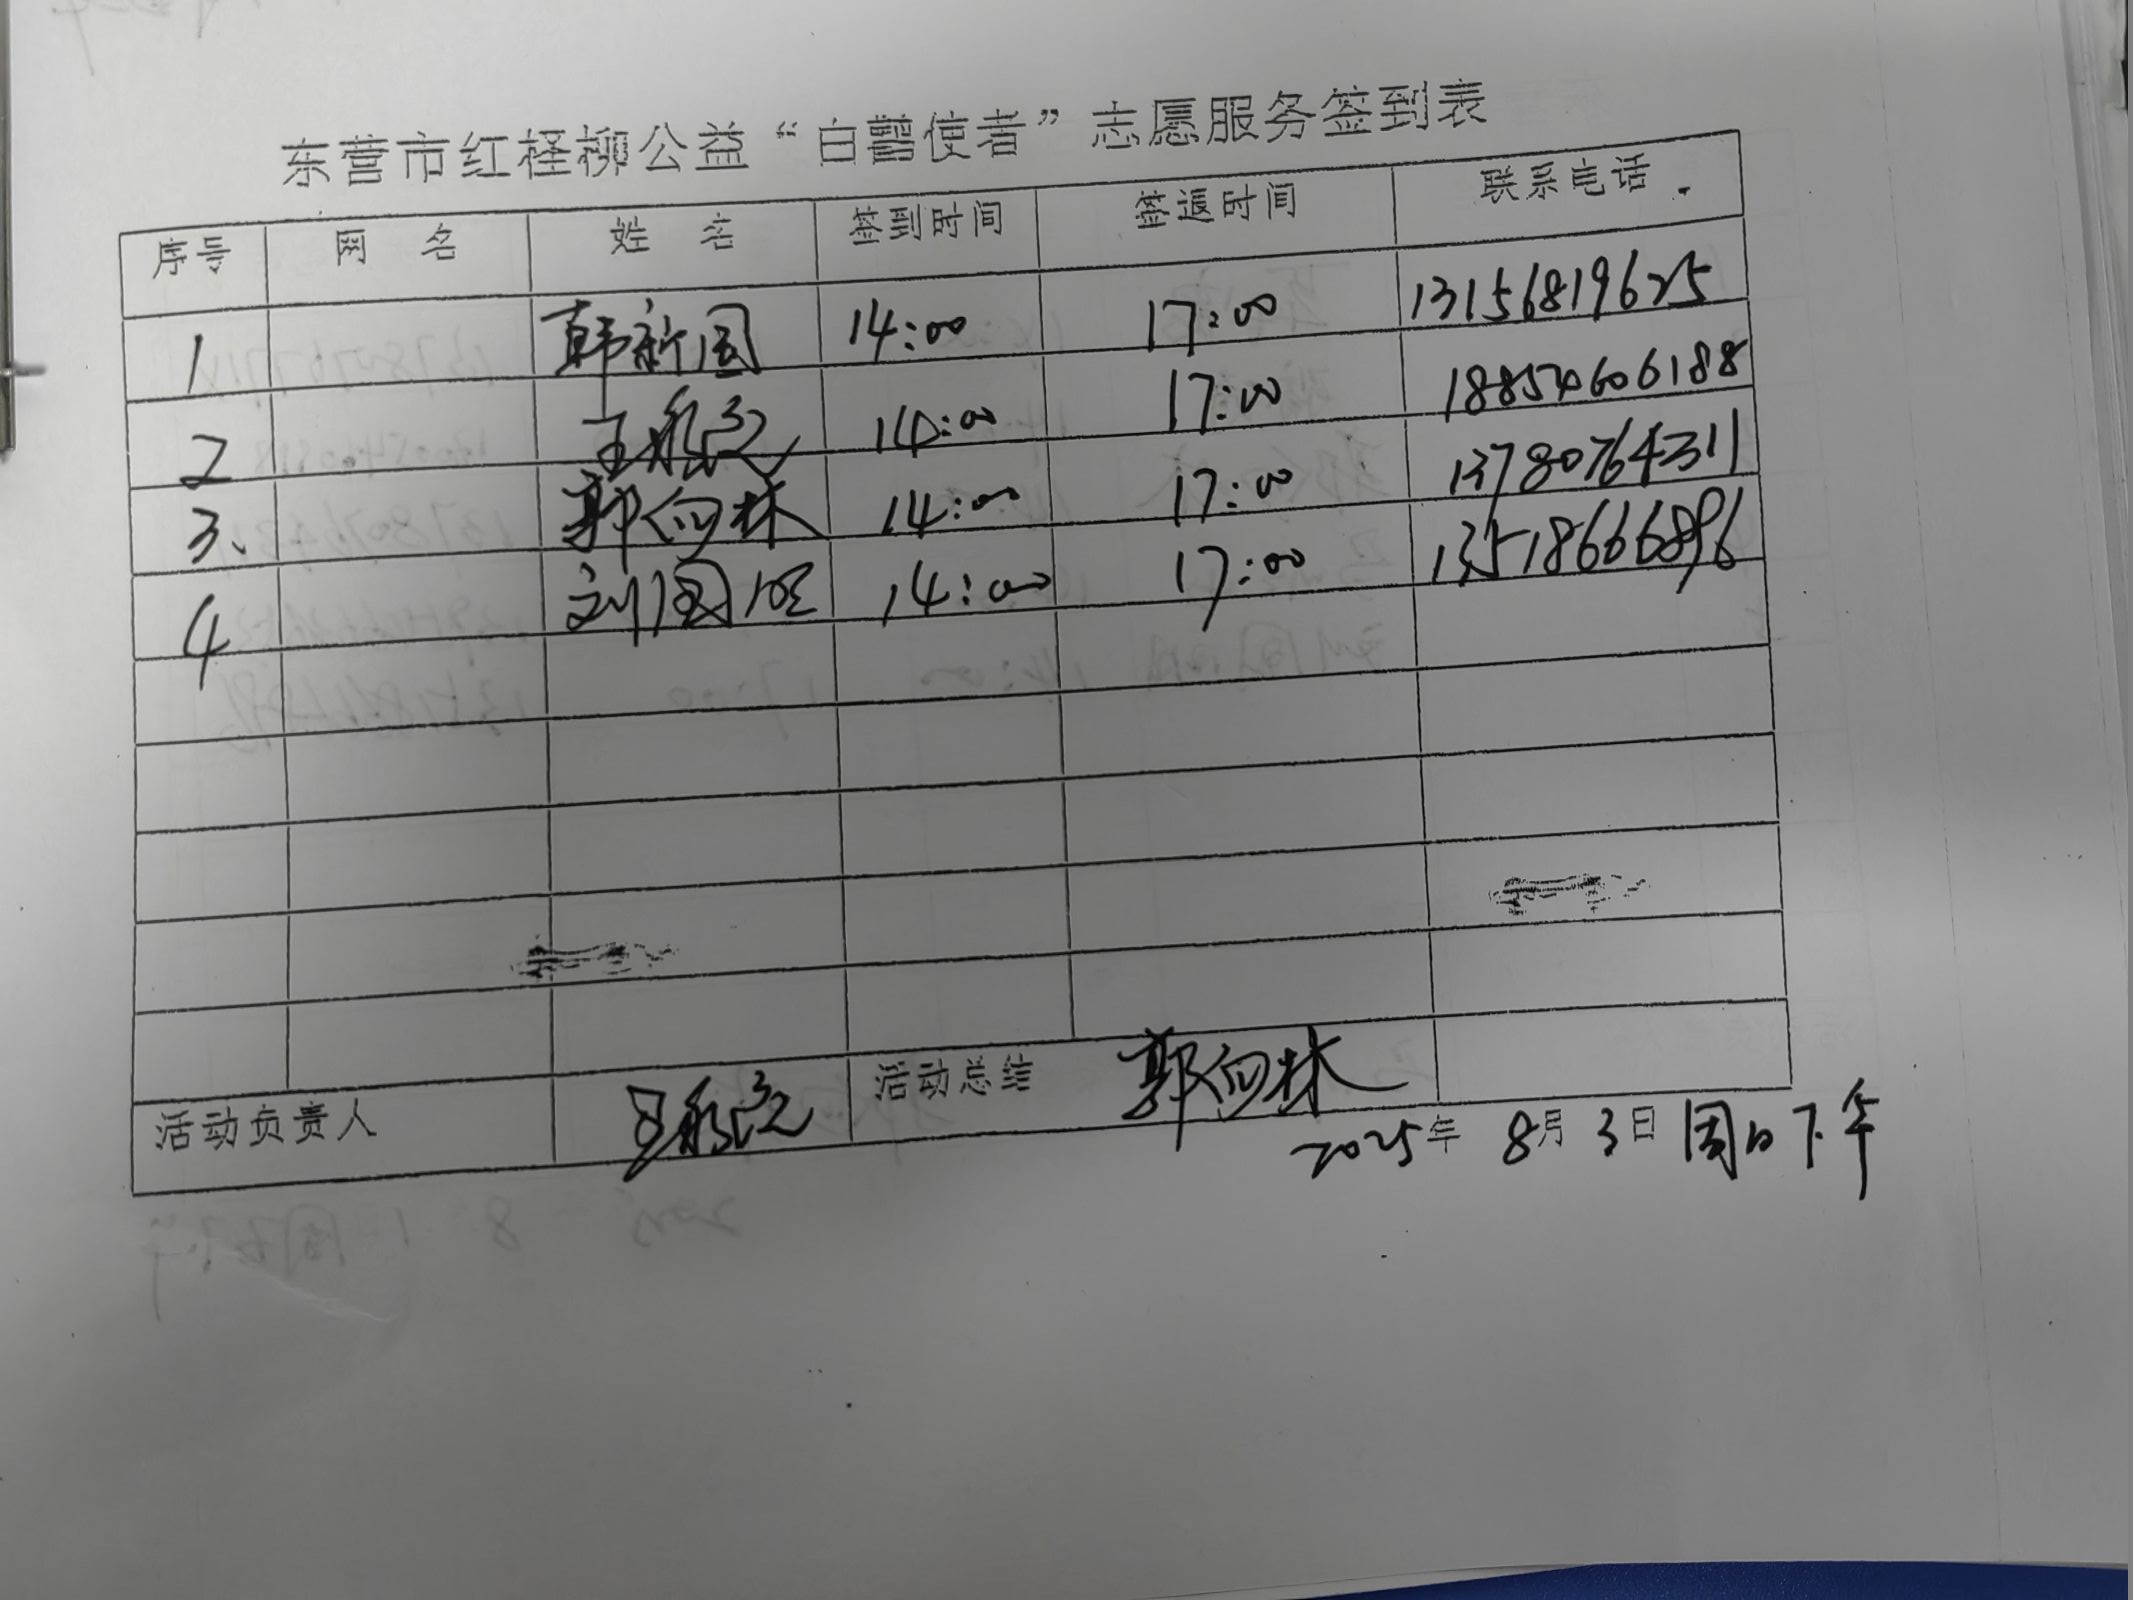 东营市红柽柳公益“白鹭使者”志愿服务签到表
序号 网 名 姓 名 签到时间 签退时间 联系电话
1 韩新国 14:00 17:00 13156819625
2 14:00 17:00 18854606188
3、 郭向林 14:00 17:00 13780764311
4 刘国旺 14:00 17:00 13518666896
活动负责人 活动总结 郭向林
2025年 8月 3日 周日下午